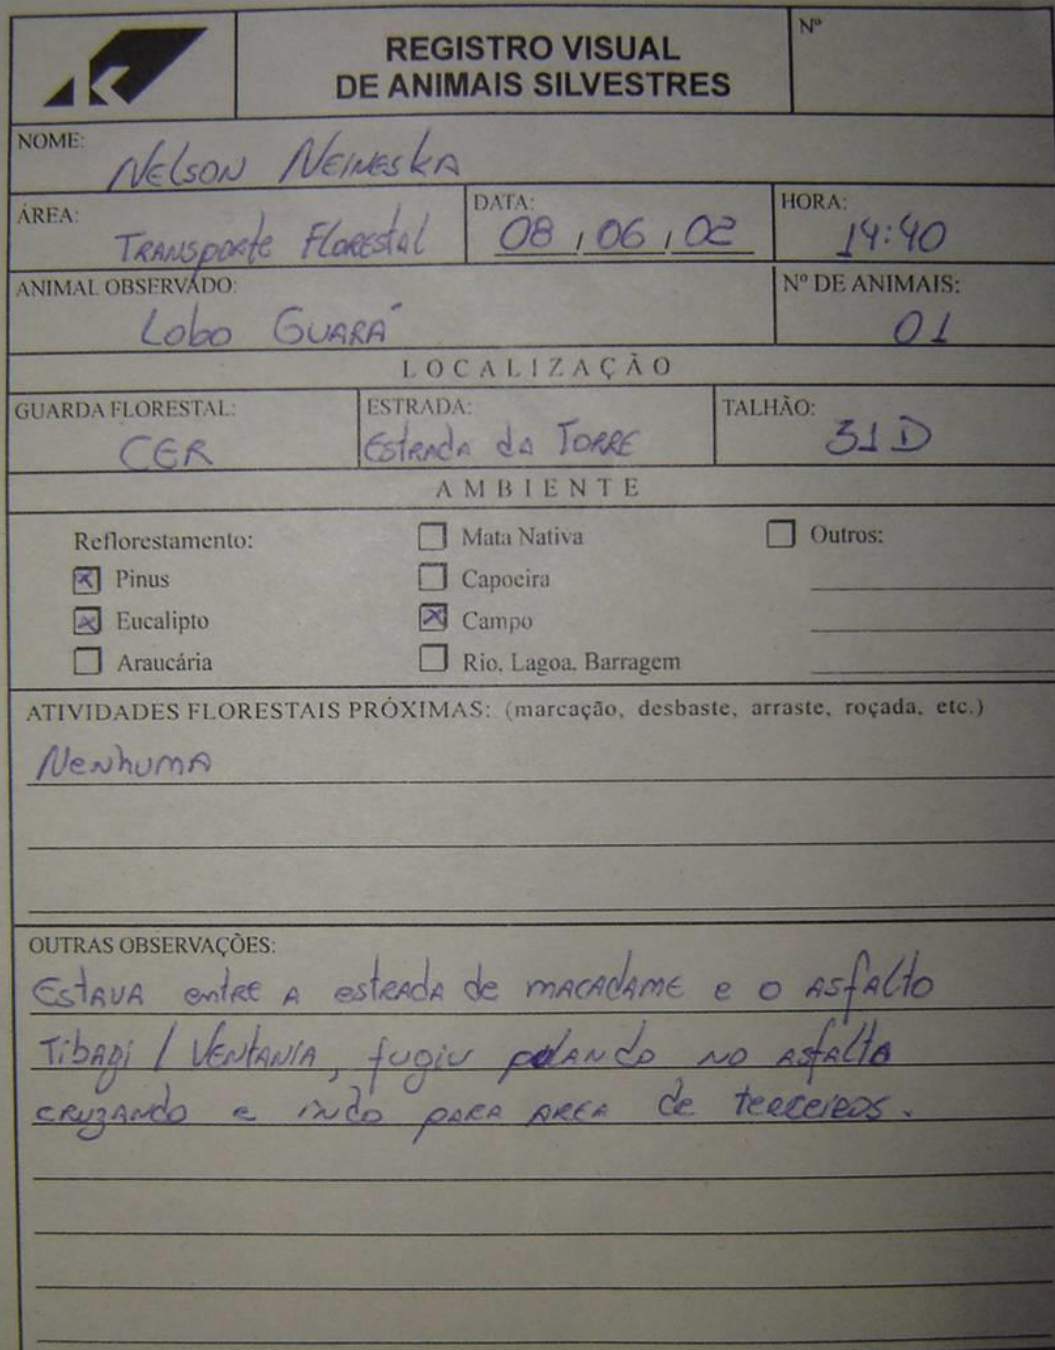 REGISTRO VISUAL
DE ANIMAIS SILVESTRES
Nº
NOME:
Nelson Neineska
ÁREA:
Transporte Florestal
DATA:
08, 06, 02
HORA:
14:40
ANIMAL OBSERVADO:
Lobo Guará
Nº DE ANIMAIS:
01
LOCALIZAÇÃO
GUARDA FLORESTAL:
CER
ESTRADA:
Estrada da Torre
TALHÃO:
31D
AMBIENTE
Reflorestamento:
Pinus
Eucalipto
Araucária
Mata Nativa
Capoeira
Campo
Rio, Lagoa, Barragem
Outros:
ATIVIDADES FLORESTAIS PRÓXIMAS: (marcação, desbaste, arraste, roçada, etc.)
Nenhuma
OUTRAS OBSERVAÇÕES:
Estava entre a estrada de macadame e o asfalto
Tibagi / Ventania, fugiu pulando no asfalto
cruzando e indo para area de terceiros.